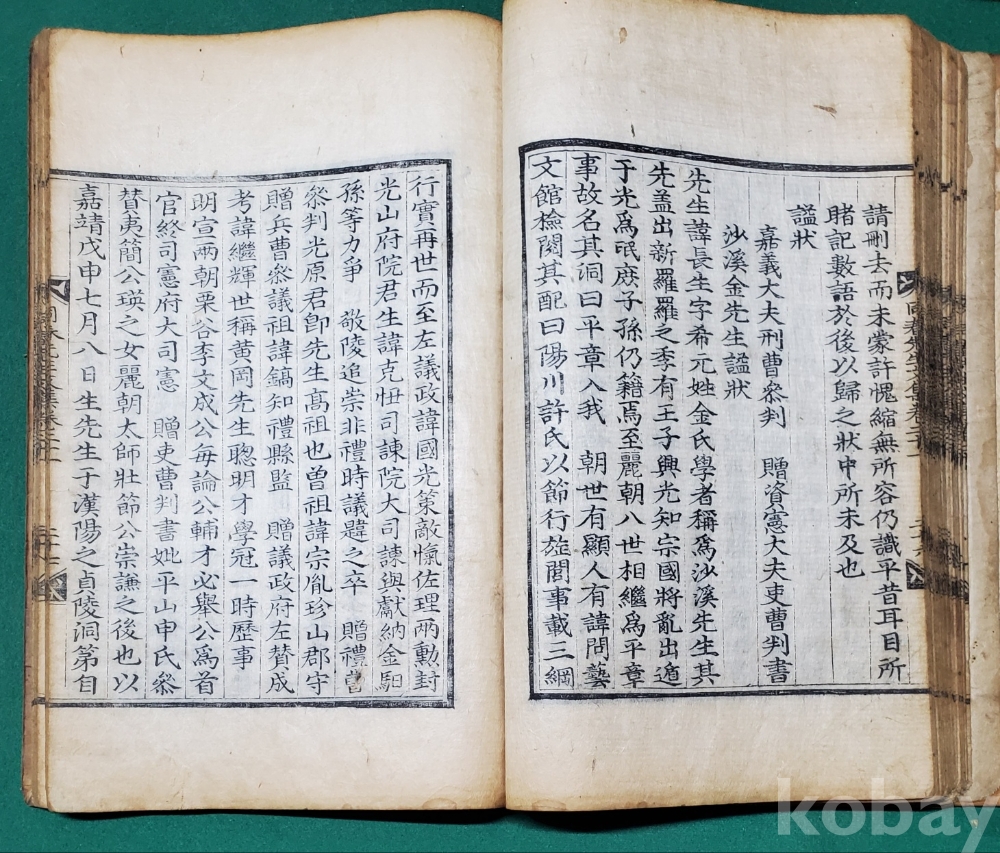 請刪去而未蒙許愧縮無所容仍識平昔耳目所
睹記數語於後以歸之狀中所未及也
諡狀
嘉義大夫刑曹參判 贈資憲大夫吏曹判書
沙溪金先生諡狀
先生諱長生字希元姓金氏學者稱爲沙溪先生其
先盖出新羅羅之季有王子興光知宗國將亂出遁
于光爲氓庶子孫仍籍焉至麗朝八世相繼爲平章
事故名其洞曰平章入我 朝世有顯人有諱問藝
文館檢閱其配曰陽川許氏以節行旌閭事載三綱
行實再世而至左議政諱國光策敵愾佐理兩勳封
光山府院君生諱克忸司諫院大司諫與獻納金馹
孫等力爭 敬陵追崇非禮時議韙之卒 贈禮曹
叅判光原君卽先生高祖也曾祖諱宗胤珍山郡守
贈兵曹叅議祖諱鎬知禮縣監 贈議政府左贊成
考諱繼輝世稱黃岡先生聰明才學冠一時歷事
明宣兩朝栗谷李文成公每論公輔才必舉公爲首
官終司憲府大司憲 贈吏曹判書妣平山申氏叅
贊夷簡公瑛之女麗朝太師壯節公崇謙之後也以
嘉靖戊申七月八日生先生于漢陽之貞陵洞第自
kobay